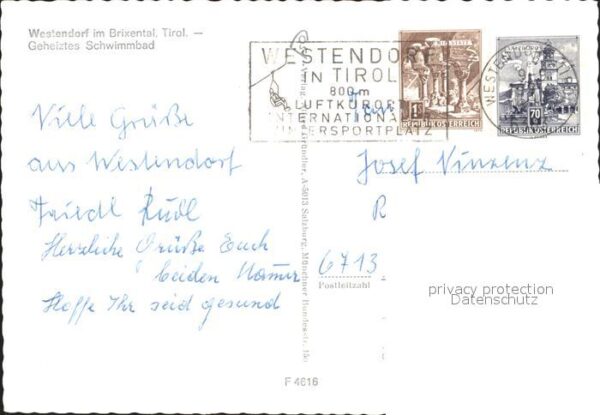 Westendorf im Brixental, Tirol. —
Geheiztes Schwimmbad
WESTENDORF
IN TIROL
800m
LUFTKURORT
INTERNATIONALER
WINTERSPORTPLATZ
REPUBLIK ÖSTERREICH
70
REPUBLIK ÖSTERREICH
Viele Grüße
aus Westendorf
Friedl Rudl
Herzliche Grüße Euch
beiden
Hoffe Ihr seid gesund
Fam
Josef Vinzenz
R
6713
Postleitzahl
A-5013 Salzburg, Münchner Bundesstr. 150
privacy protection
Datenschutz
F 4616